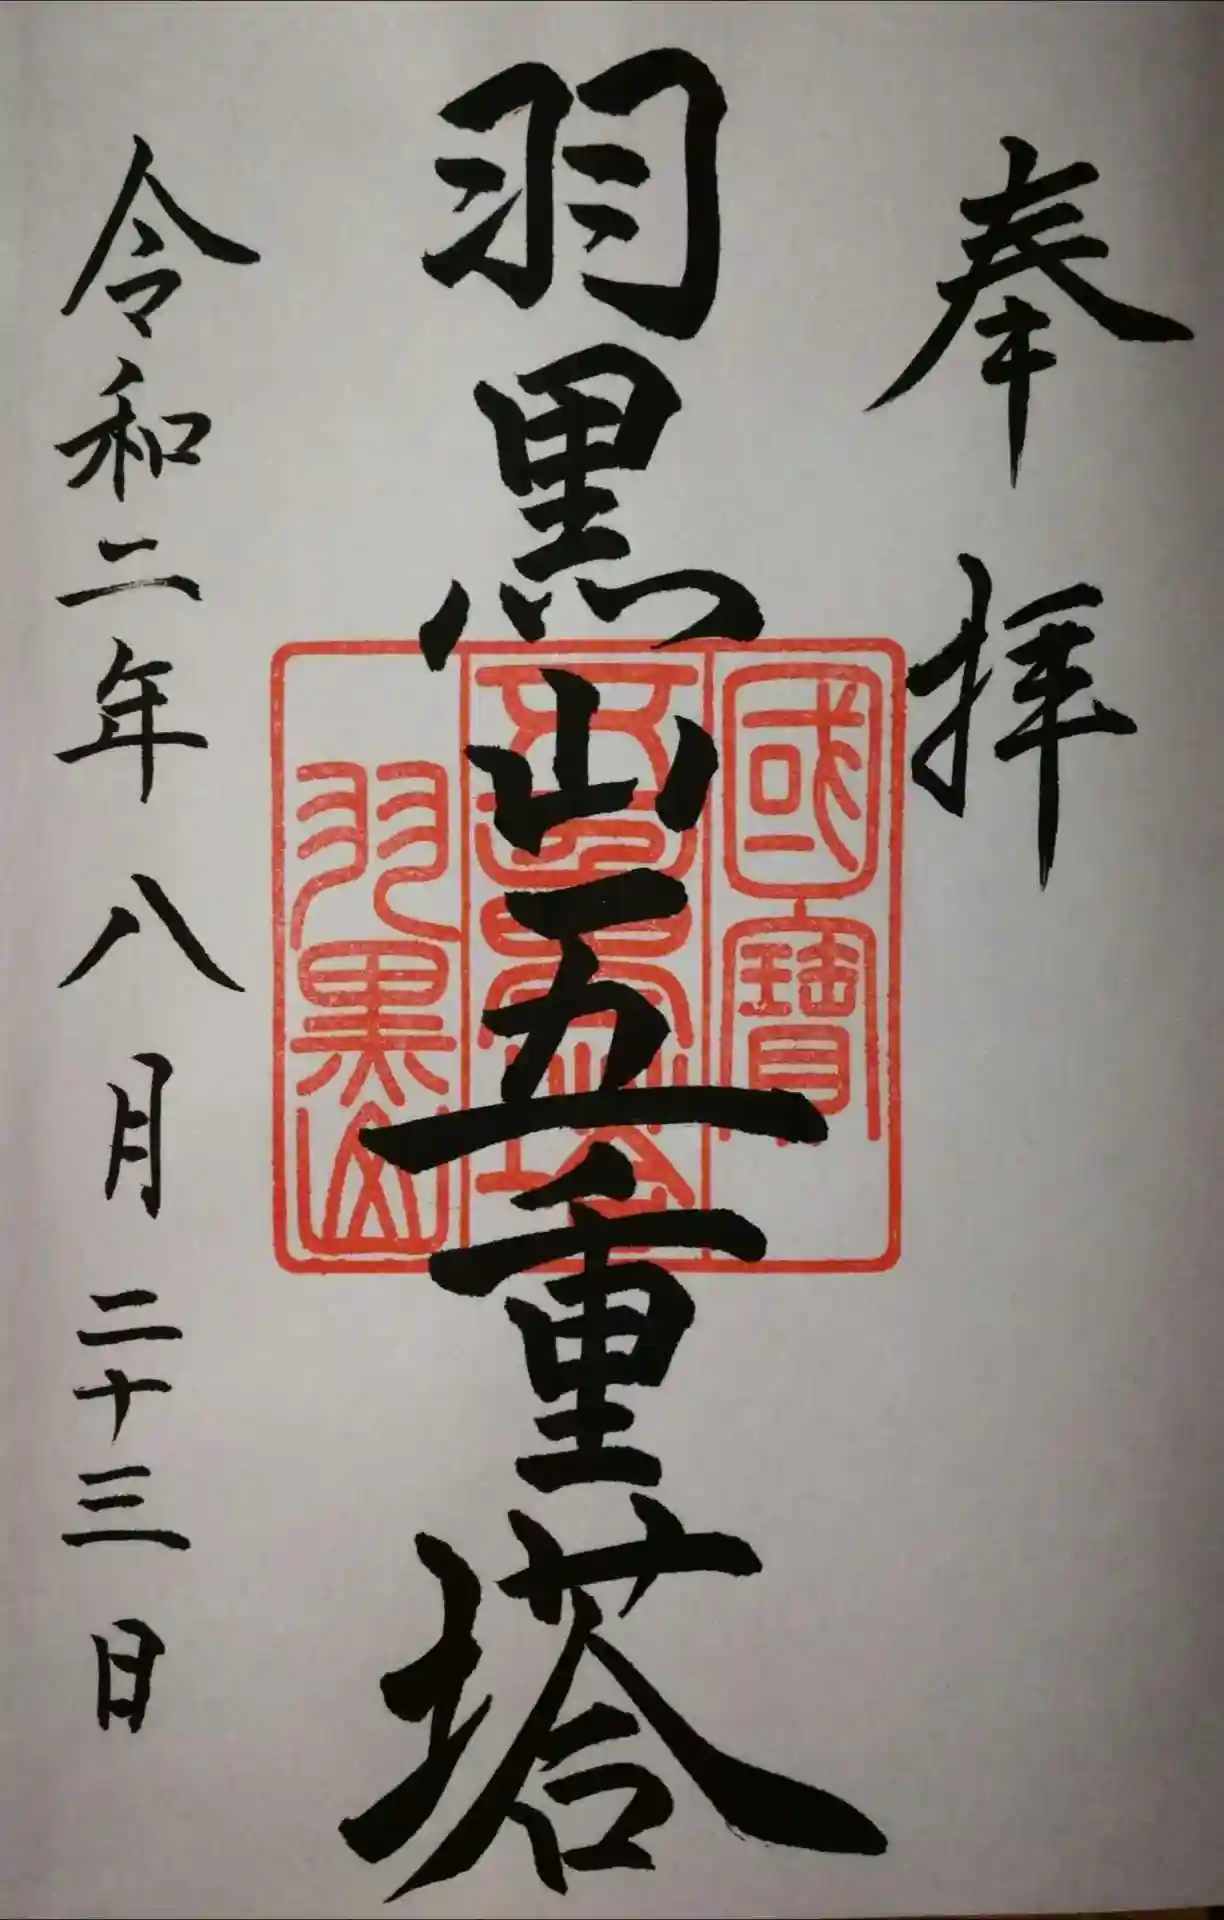 奉拝
羽黒山五重塔
國寳
五重塔
羽黒山
令和二年八月二十三日